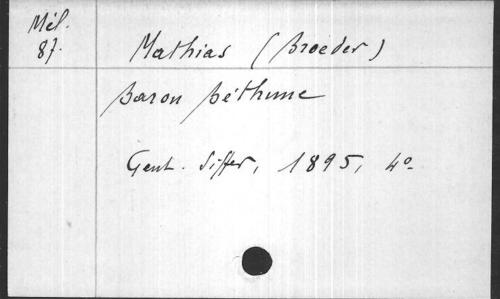 Mél.
87.
Mathias (Broeder)
Baron Béthune
Gent. Siffer, 1895, 4°